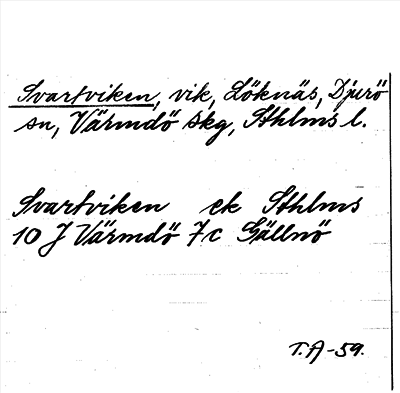 Svartviken, vik, Löknäs, Djurö
sn, Värmdö skg, Sthlms l.
Svartviken ek Sthlms
10 J Värmdö 7c Gällnö
T.A-59.